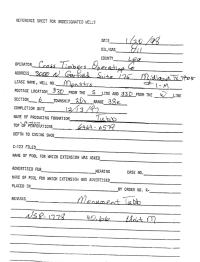 REFERENCE SHEET FOR UNDESIGNATED WELLS
DATE 1/20/98
OIL/GAS Oil
COUNTY Lea
OPERATOR Cross Timbers Operating Co
ADDRESS 3000 N Garfield Suite 175 Midland TX 79705
LEASE NAME, WELL NO. 1-M
FOOTAGE LOCATION 330 FROM THE S LINE AND 330 FROM THE LINE
SECTION TOWNSHIP RANGE
COMPLETION DATE 12/3/97
NAME OF PRODUCING FORMATION Tubb
TOP OF PERFORATIONS 6464-6579
DEPTH TO CASING SHOE
C-123 FILED
NAME OF POOL FOR WHICH EXTENSION WAS ASKED
ADVERTISED FOR HEARING CASE NO.
NAME OF POOL FOR WHICH EXTENSION WAS ADVERTISED
PLACED IN BY ORDER NO. R-
REMARKS Monument Tubb
NSP-1778 Unit M